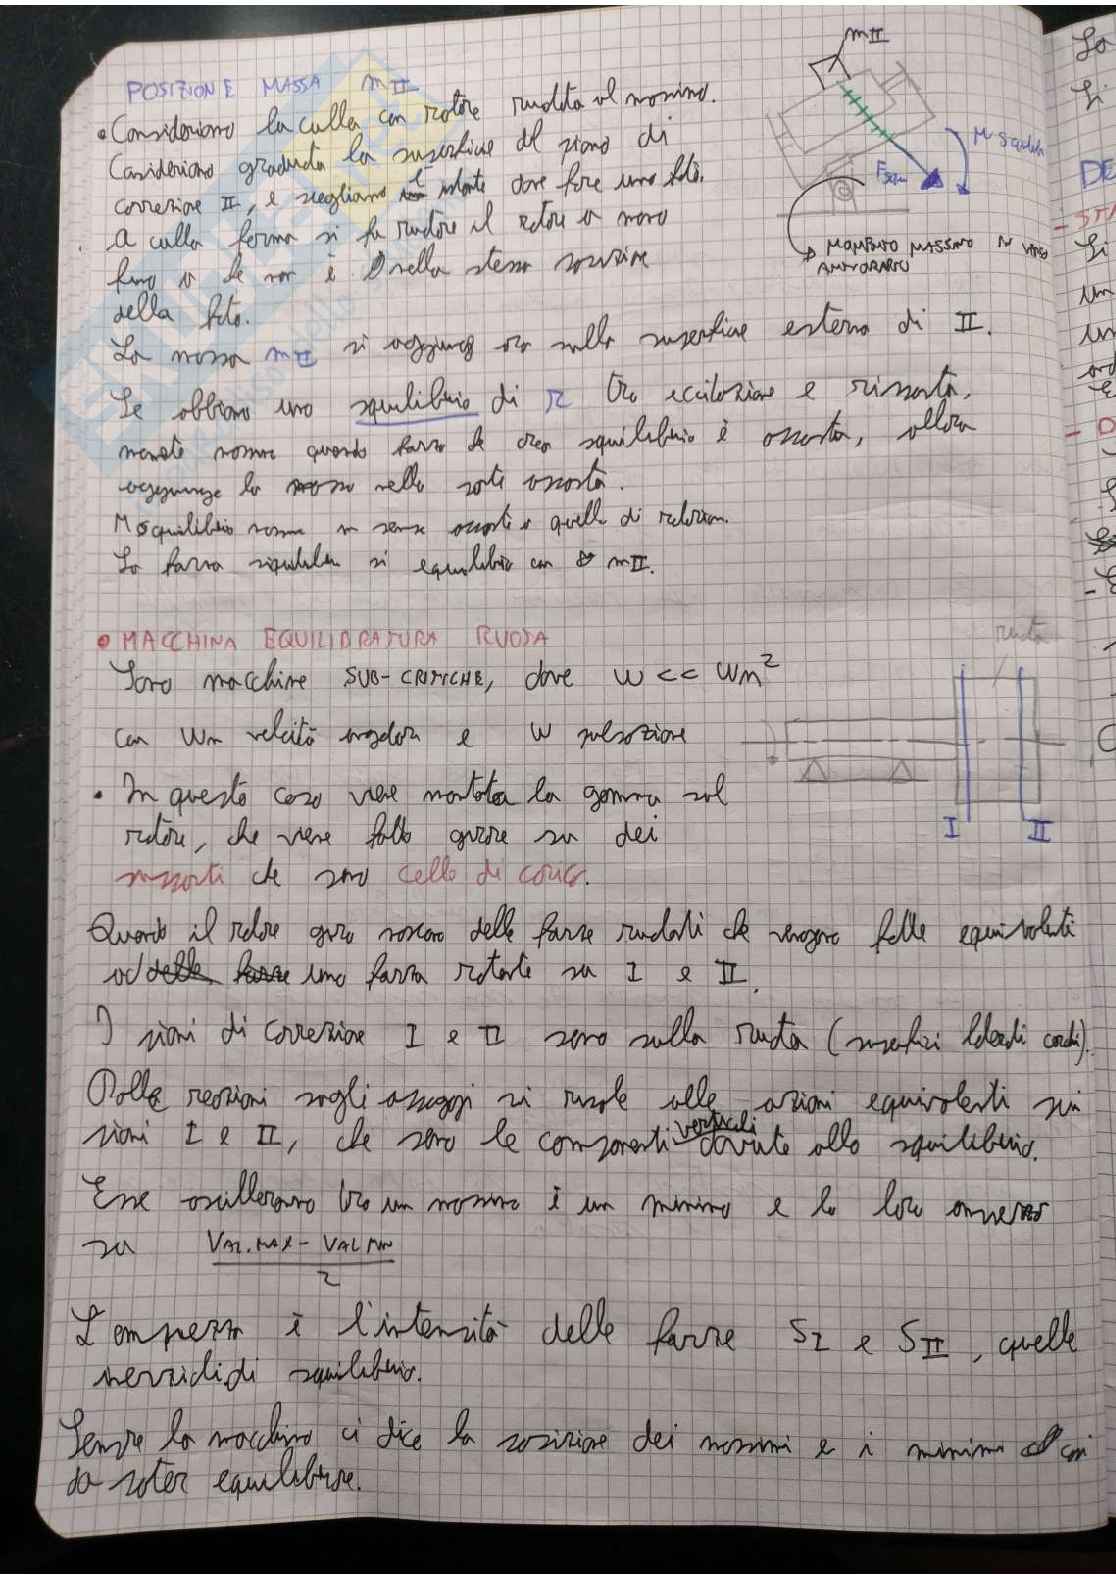 POSIZIONE MASSA mII
• Consideriamo la culla con rotore ruotata al massimo.
Consideriamo graduata la superficie del piano di
correzione II, e scegliamo l'istante dove fare una foto.
A culla ferma si fa ruotare il rotore a mano
fino a che non è nella stessa posizione
della foto.
La massa mII si aggiunge ora sulla superficie esterna di II.
Se abbiamo uno squilibrio di π tra eccitazione e risposta,
momento massimo quando forza che crea squilibrio è opposta, allora
aggiungo la massa nella parte opposta.
M squilibrio massimo in senso opposto a quello di rotazione.
La forza squilibrio si equilibra con mII.
mII
M squilibrio
Fsqu
MOMENTO MASSIMO IN VERSO
ANTIORARIO
• MACCHINA EQUILIBRATURA RUOTA
Sono macchine SUB-CRITICHE, dove W << Wn²
con Wn velocità angolare e W pulsazione
ruota
I II
• In questo caso viene montata la gomma sul
rotore, che viene fatto girare su dei
supporti che sono celle di carico.
Quando il rotore gira nascono delle forze rotanti che vengono fatte equivalenti
ad delle forze una forza rotante su I e II.
I piani di correzione I e II sono sulla ruota (superfici laterali cerchi).
Dalle reazioni sugli appoggi si risale alle azioni equivalenti sui
piani I e II, che sono le componenti verticali dovute allo squilibrio.
Esse oscilleranno tra un massimo e un minimo e la loro ampiezza
sarà VAL.MAX - VAL MIN
2
L'ampiezza è l'intensità delle forze SI e SII, quelle
inerziali di squilibrio.
Sempre la macchina ci dice la posizione dei massimi e i minimi così
da poter equilibrare.